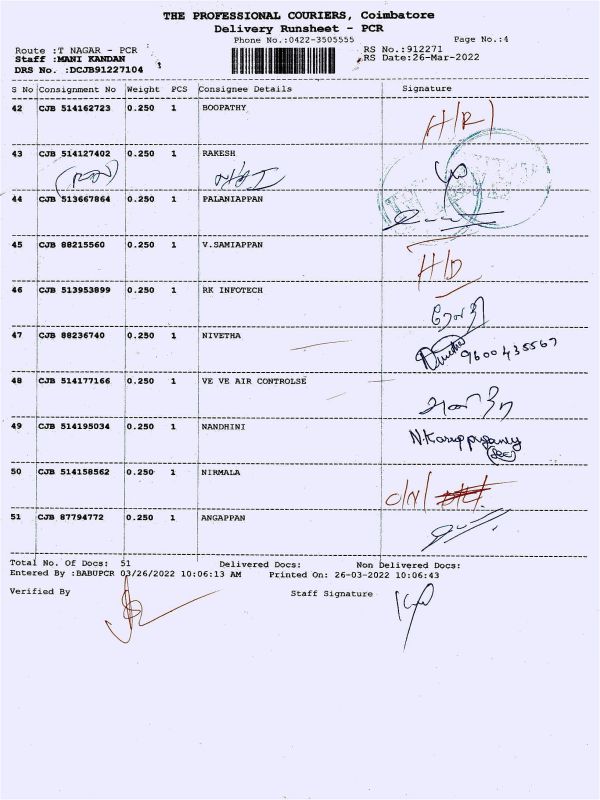 THE PROFESSIONAL COURIERS, Coimbatore
Delivery Runsheet - PCR
Phone No.:0422-3505555 Page No.:4
Route :T NAGAR - PCR RS No.:912271
Staff :MANI KANDAN RS Date:26-Mar-2022
DRS No. :DCJB91227104
S No Consignment No Weight PCS Consignee Details Signature
42 CJB 514162723 0.250 1 BOOPATHY
43 CJB 514127402 0.250 1 RAKESH
44 CJB 513667864 0.250 1 PALANIAPPAN
45 CJB 88215560 0.250 1 V.SAMIAPPAN H/D
46 CJB 513953899 0.250 1 RK INFOTECH
47 CJB 88236740 0.250 1 NIVETHA 9600435567
48 CJB 514177166 0.250 1 VE VE AIR CONTROLSE
49 CJB 514195034 0.250 1 NANDHINI
50 CJB 514158562 0.250 1 NIRMALA
51 CJB 87794772 0.250 1 ANGAPPAN
Total No. Of Docs: 51 Delivered Docs: Non Delivered Docs:
Entered By :BABUPCR 03/26/2022 10:06:13 AM Printed On: 26-03-2022 10:06:43
Verified By Staff Signature